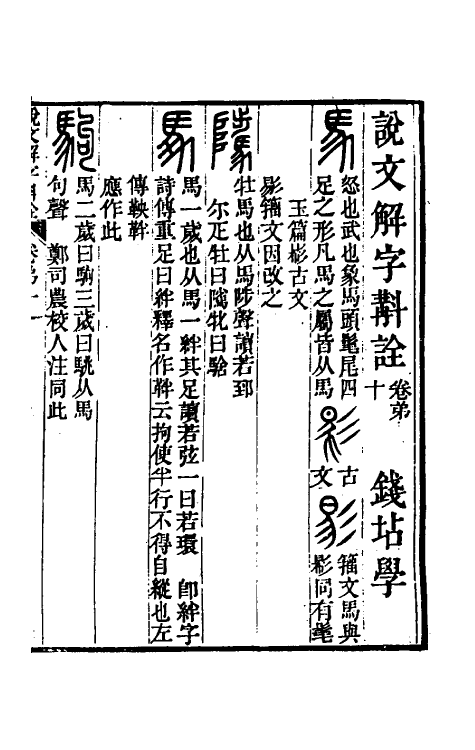 說文解字斠詮 卷弟十 錢坫學
馬 怒也武也象馬頭髦尾四足之形凡馬之屬皆从馬 古文 籒文馬與影同有髦
玉篇影古文
影籒文因改之
騭 牡馬也从馬陟聲讀若郅
尒疋牡曰騭牝曰騇
馬一歲也从馬一絆其足讀若弦一曰若環 卽絆字
詩傳重足曰絆釋名作靽云拘使半行不得自縱也左
傳鞅靽
應作此
駒 馬二歲曰駒三歲曰駣从馬
句聲 鄭司農校人注同此
說文解字斠詮